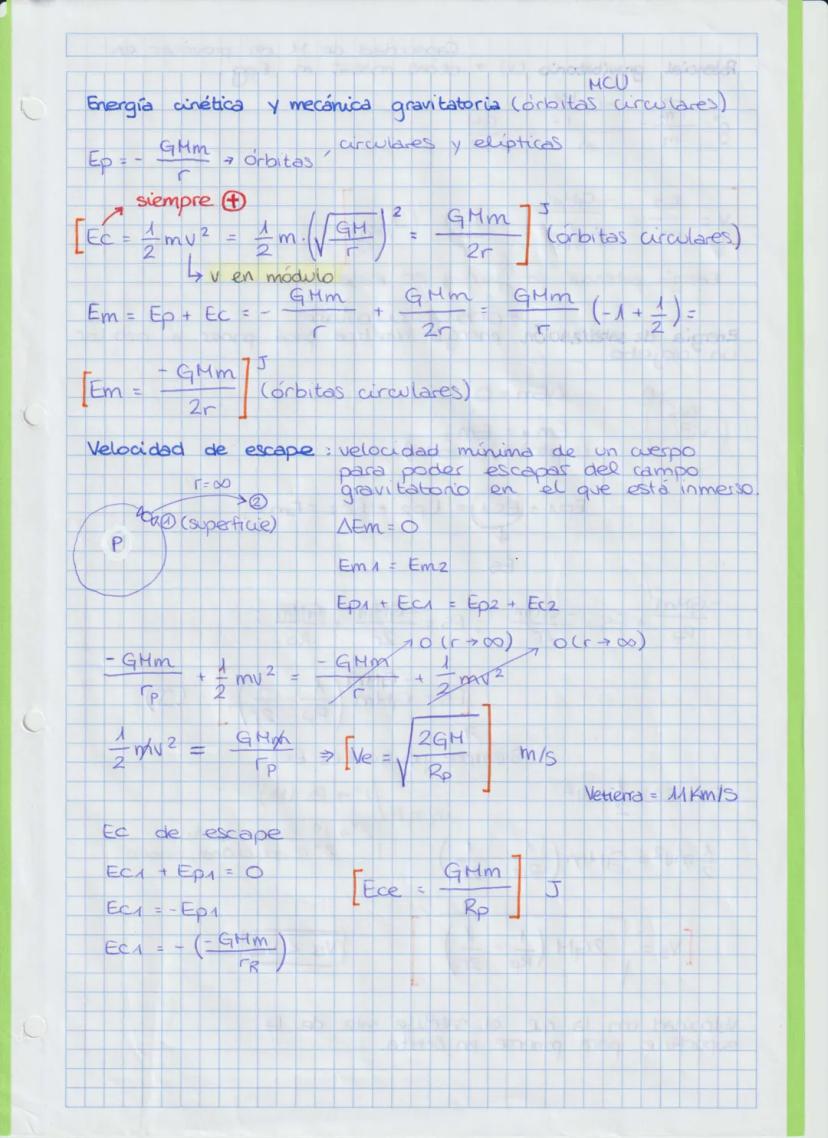 MCU
Energía cinética y mecánica gravitatoria (órbitas circulares)
Ep = - GMm / r → órbitas circulares y elípticas
siempre +
[Ec = 1/2 mv² = 1/2 m · (√(GM/r))² = GMm / 2r] J (órbitas circulares)
↳ v en módulo
Em = Ep + Ec = - GMm / r + GMm / 2r = GMm / r (-1 + 1/2) =
[Em = -GMm / 2r] J (órbitas circulares)
Velocidad de escape : velocidad mínima de un cuerpo
para poder escapar del campo
gravitatorio en el que está inmerso.
r=∞
②
① (superficie)
P
ΔEm = 0
Em1 = Em2
Ep1 + Ec1 = Ep2 + Ec2
0 (r → ∞) 0 (r → ∞)
-GMm / rp + 1/2 mv² = -GMm / r + 1/2 mv²
1/2 mv² = GMm / rp ⇒ [Ve = √(2GM / Rp)] m/s
Vetierra = 11 Km/s
Ec de escape
Ec1 + Ep1 = 0
[Ece = GMm / Rp] J
Ec1 = -Ep1
Ec1 = - (-GMm / rR)